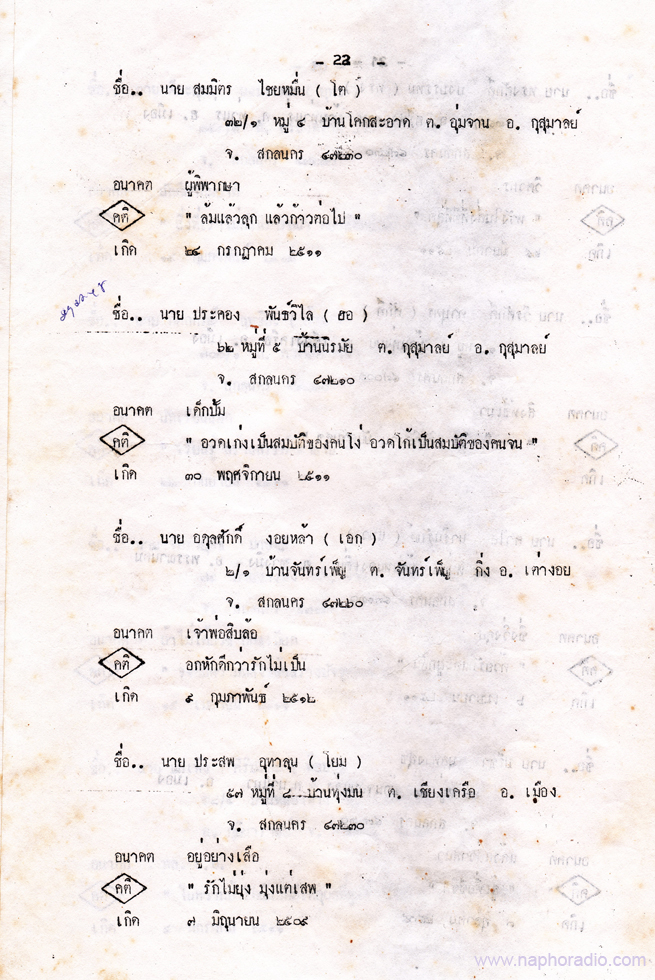 - 22 -
ชื่อ.. นาย สมมิตร ไชยหมื่น ( โต )
๓๒/๑ หมู่ ๔ บ้านโคกสะอาด ต. อุ่มจาน อ. กุสุมาลย์
จ. สกลนคร ๔๗๒๓๐
อนาคต ผู้พิพากษา
คติ " ล้มแล้วลุก แล้วก้าวต่อไป "
เกิด ๒๔ กรกฎาคม ๒๕๑๑
ชื่อ.. นาย ประคอง พันธ์วิไล ( ฮอ )
๖๒ หมู่ที่ ๕ บ้านนิรมัย ต. กุสุมาลย์ อ. กุสุมาลย์
จ. สกลนคร ๔๗๒๑๐
อนาคต เด็กปั้ม
คติ " อวดเก่งเป็นสมบัติของคนโง่ อวดโก้เป็นสมบัติของคนจน "
เกิด ๓๐ พฤศจิกายน ๒๕๑๑
ชื่อ.. นาย อดุลศักดิ์ งอยหล้า ( เอก )
๒/๑ บ้านจันทร์เพ็ญ ต. จันทร์เพ็ญ กิ่ง อ. เต่างอย
จ. สกลนคร ๔๗๒๖๐
อนาคต เจ้าพ่อสิบล้อ
คติ อกหักดีกว่ารักไม่เป็น
เกิด ๕ กุมภาพันธ์ ๒๕๑๒
ชื่อ.. นาย ประสพ อุทาลุน ( โยม )
๕๗ หมู่ที่ ๘ บ้านทุ่งมน ต. เชียงเครือ อ. เมือง
จ. สกลนคร ๔๗๒๓๐
อนาคต อยู่อย่างเสือ
คติ " รักไม่ยุ่ง มุ่งแต่เสพ "
เกิด ๗ มิถุนายน ๒๕๐๙
www.naphoradio.com